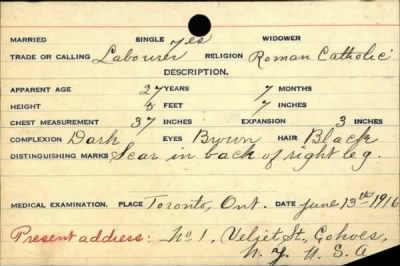 MARRIED SINGLE yes WIDOWER
TRADE OR CALLING Labourer RELIGION Roman Catholic
DESCRIPTION.
APPARENT AGE 27 YEARS 7 MONTHS
HEIGHT 5 FEET 7 INCHES
CHEST MEASUREMENT 37 INCHES EXPANSION 3 INCHES
COMPLEXION Dark EYES Brown HAIR Black
DISTINGUISHING MARKS Scar in back of right leg.
MEDICAL EXAMINATION. PLACE Toronto, Ont. DATE June 13th 1916
Present address: No. 1, Veljet St., Cohoes,
N.Y. U.S.A